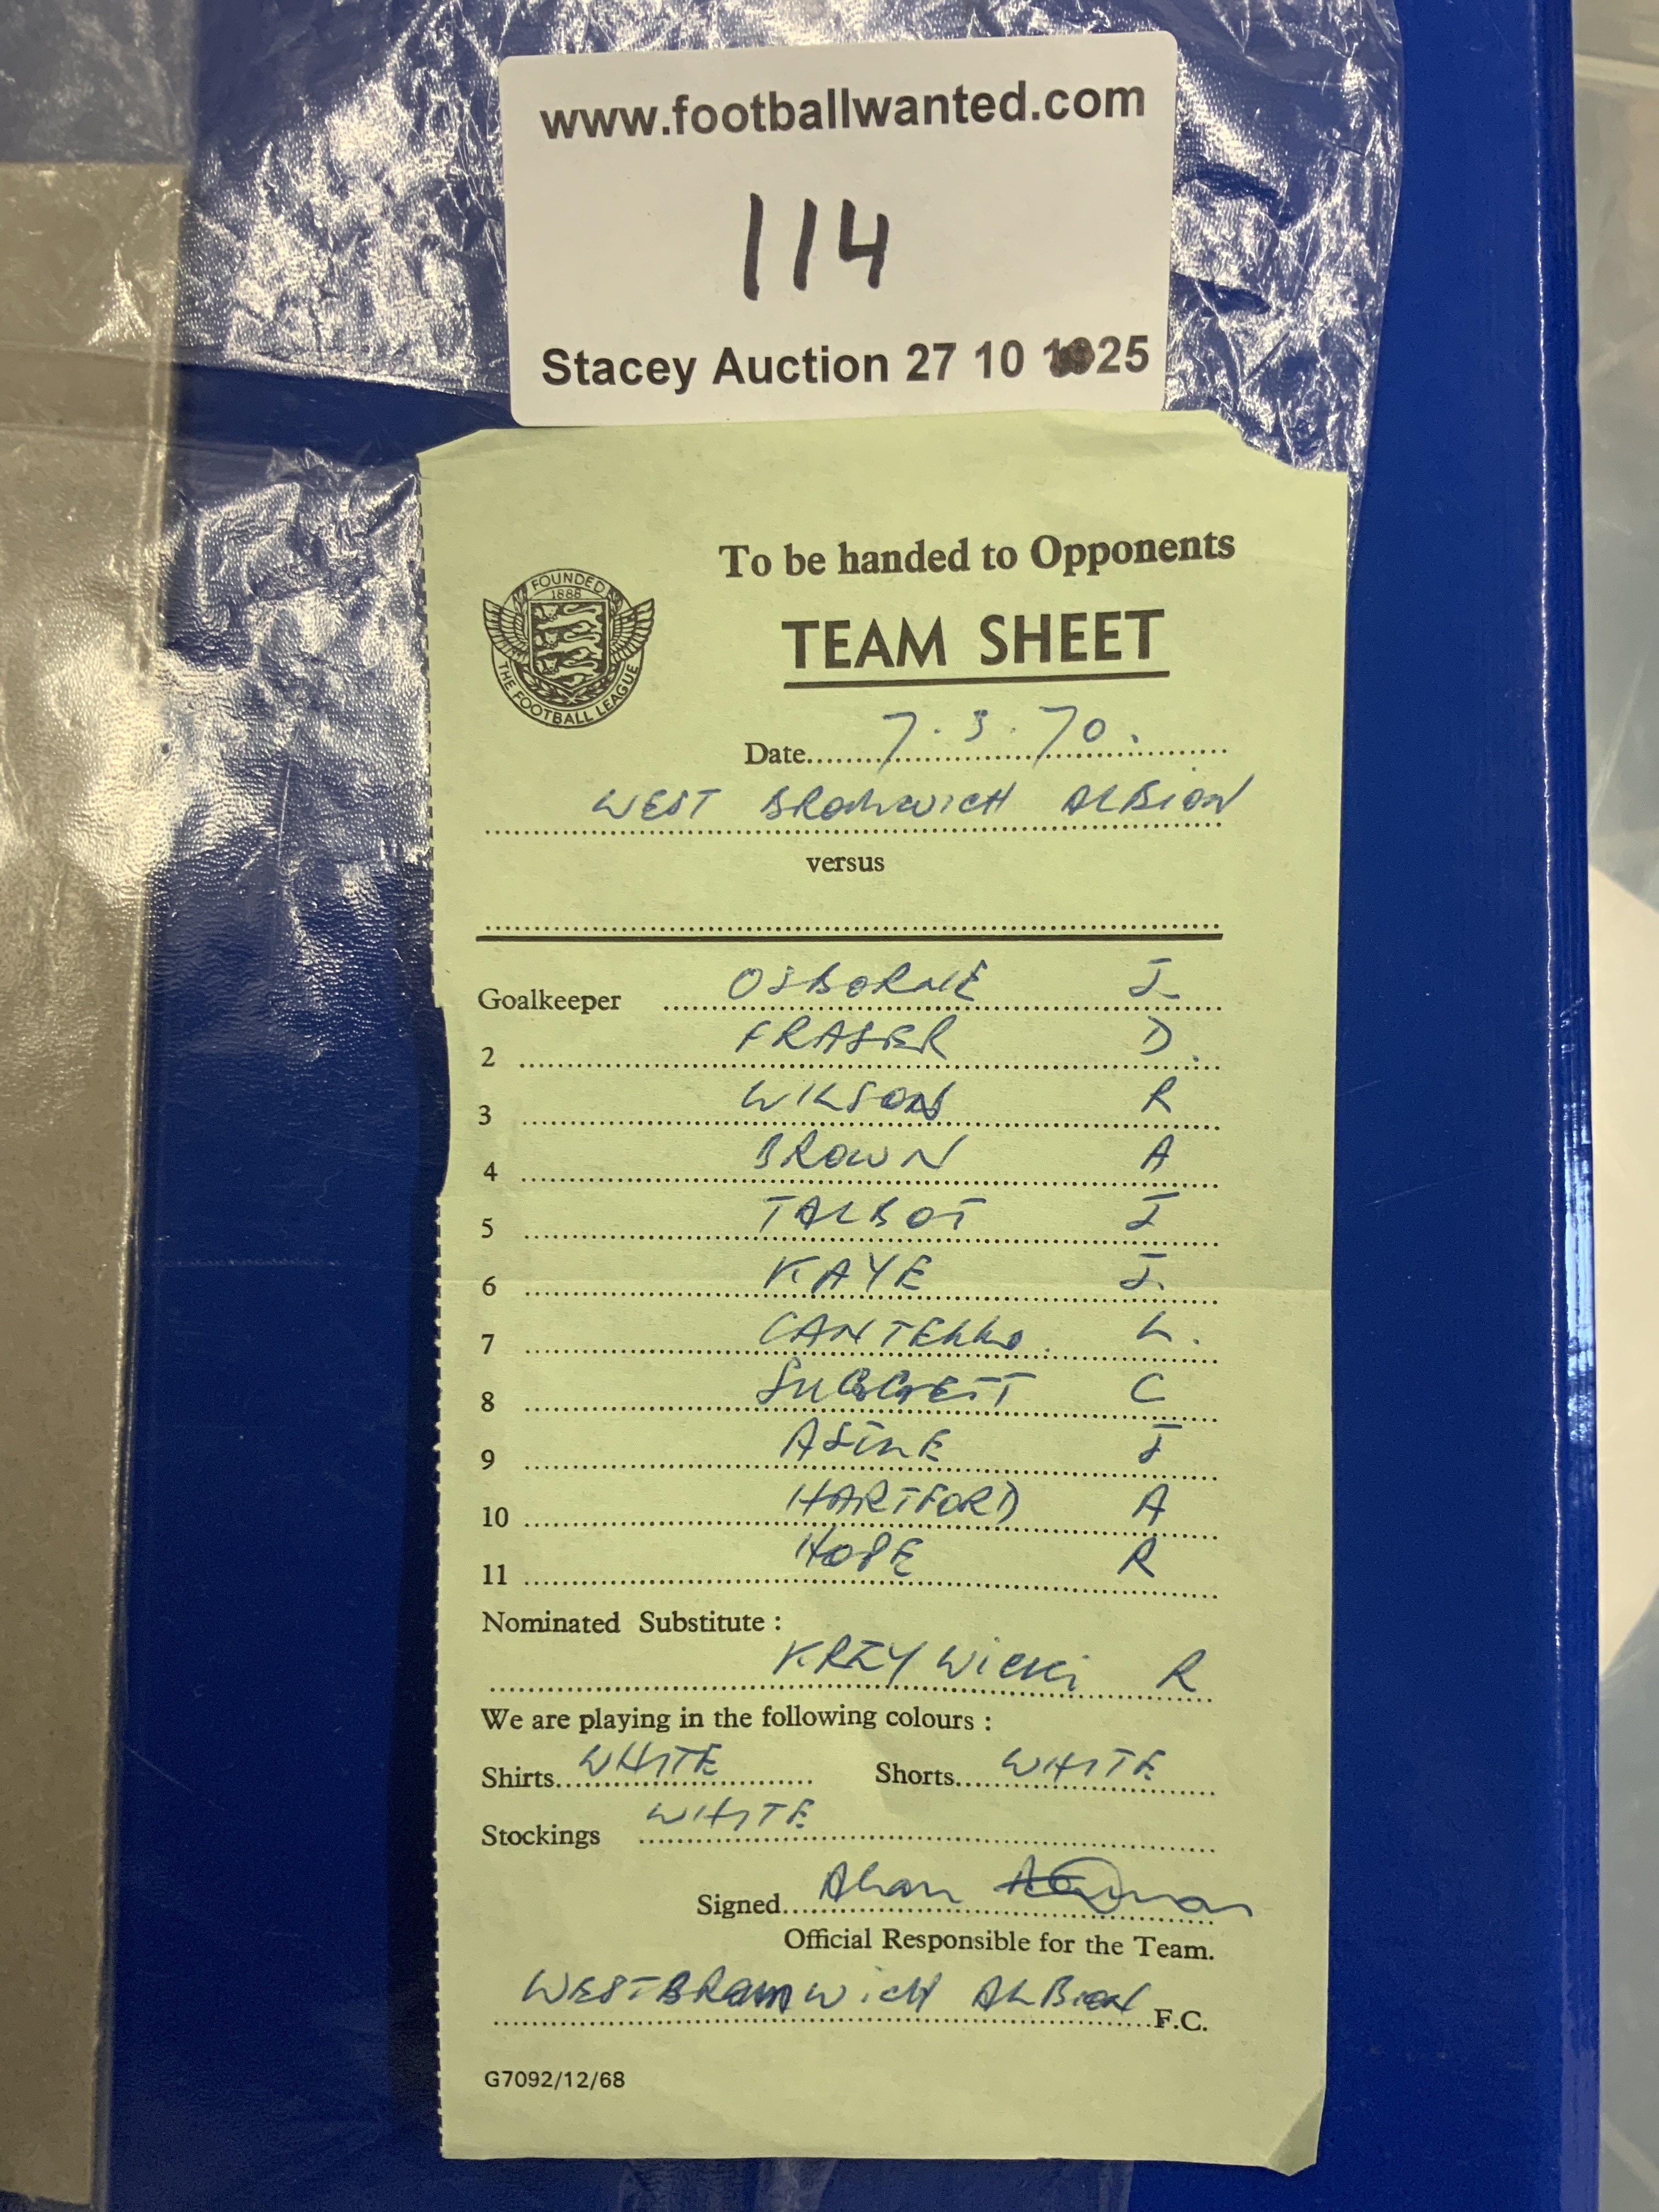 www.footballwanted.com
114
Stacey Auction 27 10 25
To be handed to Opponents
FOUNDED
1888
THE FOOTBALL LEAGUE
TEAM SHEET
Date 7.3.70.
WEST BROMWICH ALBION
versus
Goalkeeper OSBORNE J.
2 FRASER D.
3 WILSON R
4 BROWN A
5 TALBOT J
6 KAYE J.
7 CANTELLO. L.
8 SUGGETT C
9 ASTLE J
10 HARTFORD A
11 HOPE R
Nominated Substitute :
KRZYWICKI R
We are playing in the following colours :
Shirts WHITE Shorts WHITE
Stockings WHITE
Signed Alan
Official Responsible for the Team.
WEST BROMWICH ALBION F.C.
G7092/12/68